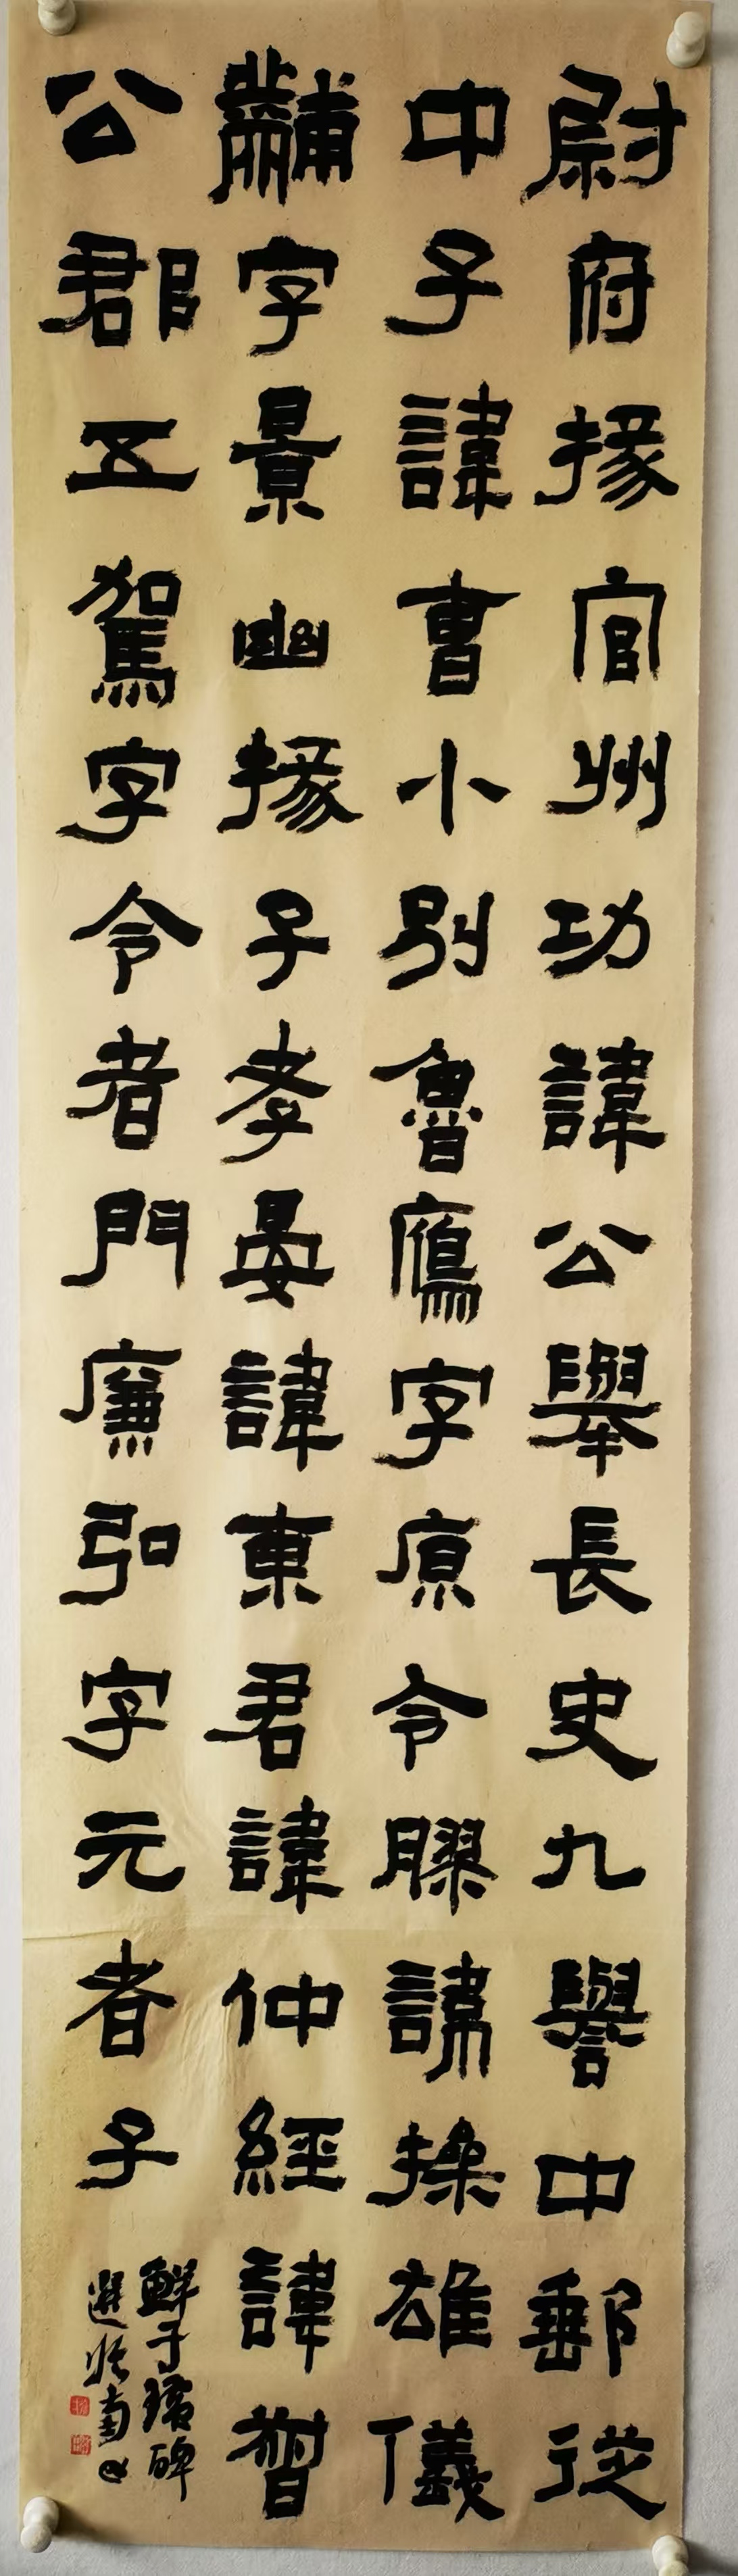 尉府掾官州功諱公舉長史九譽中郵從
中子諱書小別魯鷹字原令膠諱操雄儀
黼字景幽掾子孝晏諱東君諱仲經諱智
公郡五駕字令者門廉弘字元者子
鮮于璜碑
選臨